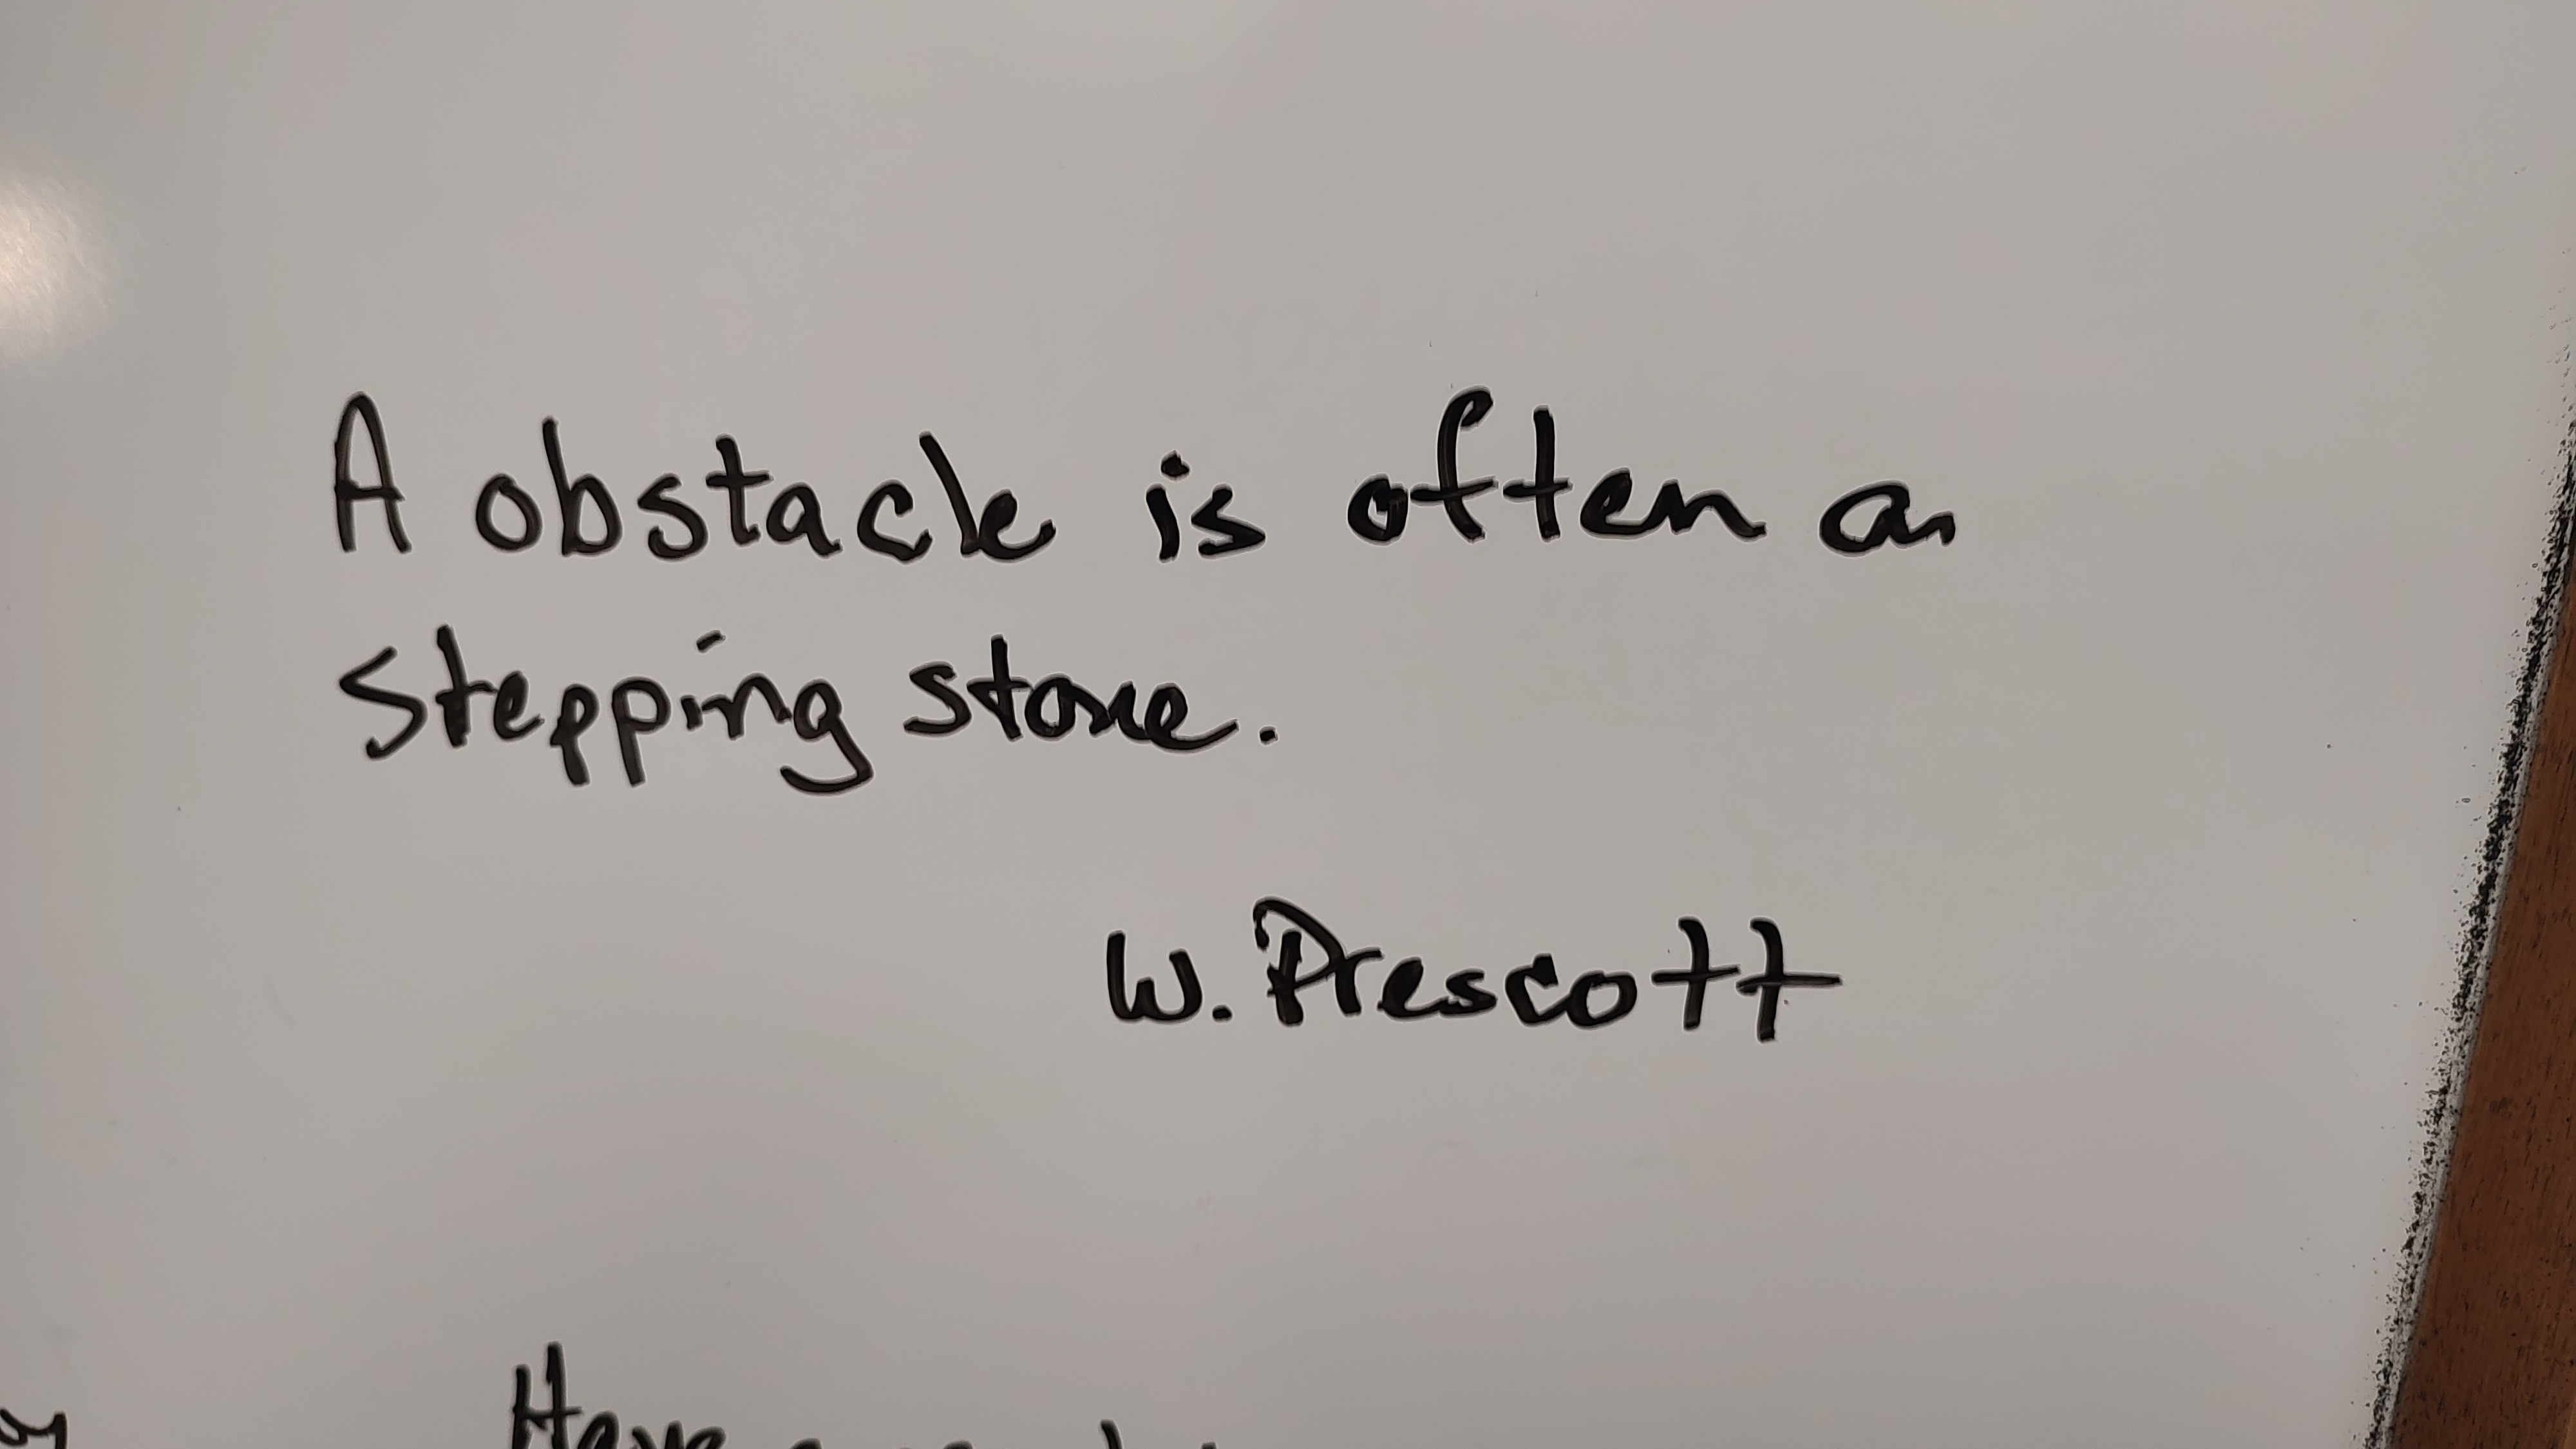 A obstacle is often a
stepping stone.
W. Prescott
Have